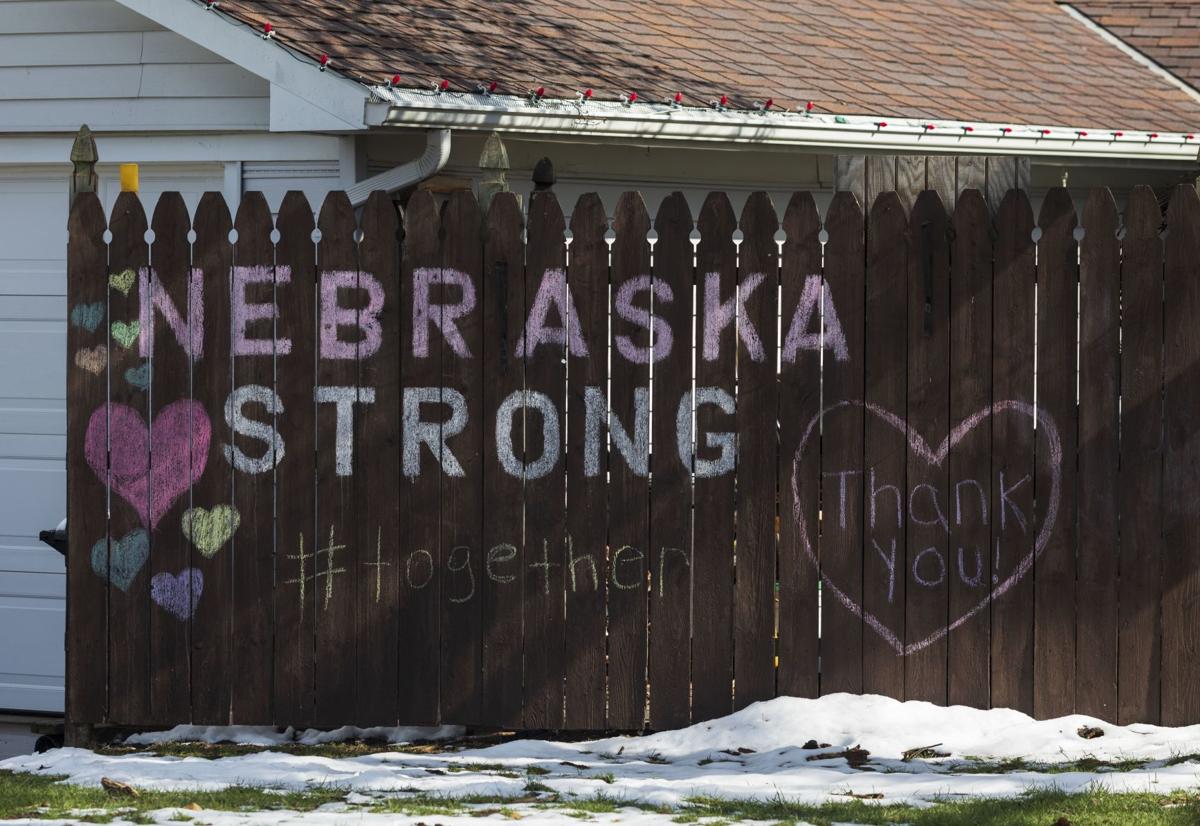 NEBRASKA
STRONG
#together
Thank
you!